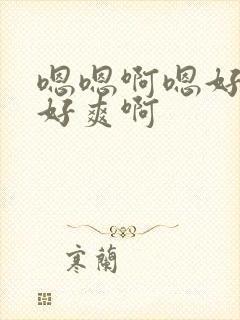 嗯嗯啊嗯好
好爽啊
寒蘭